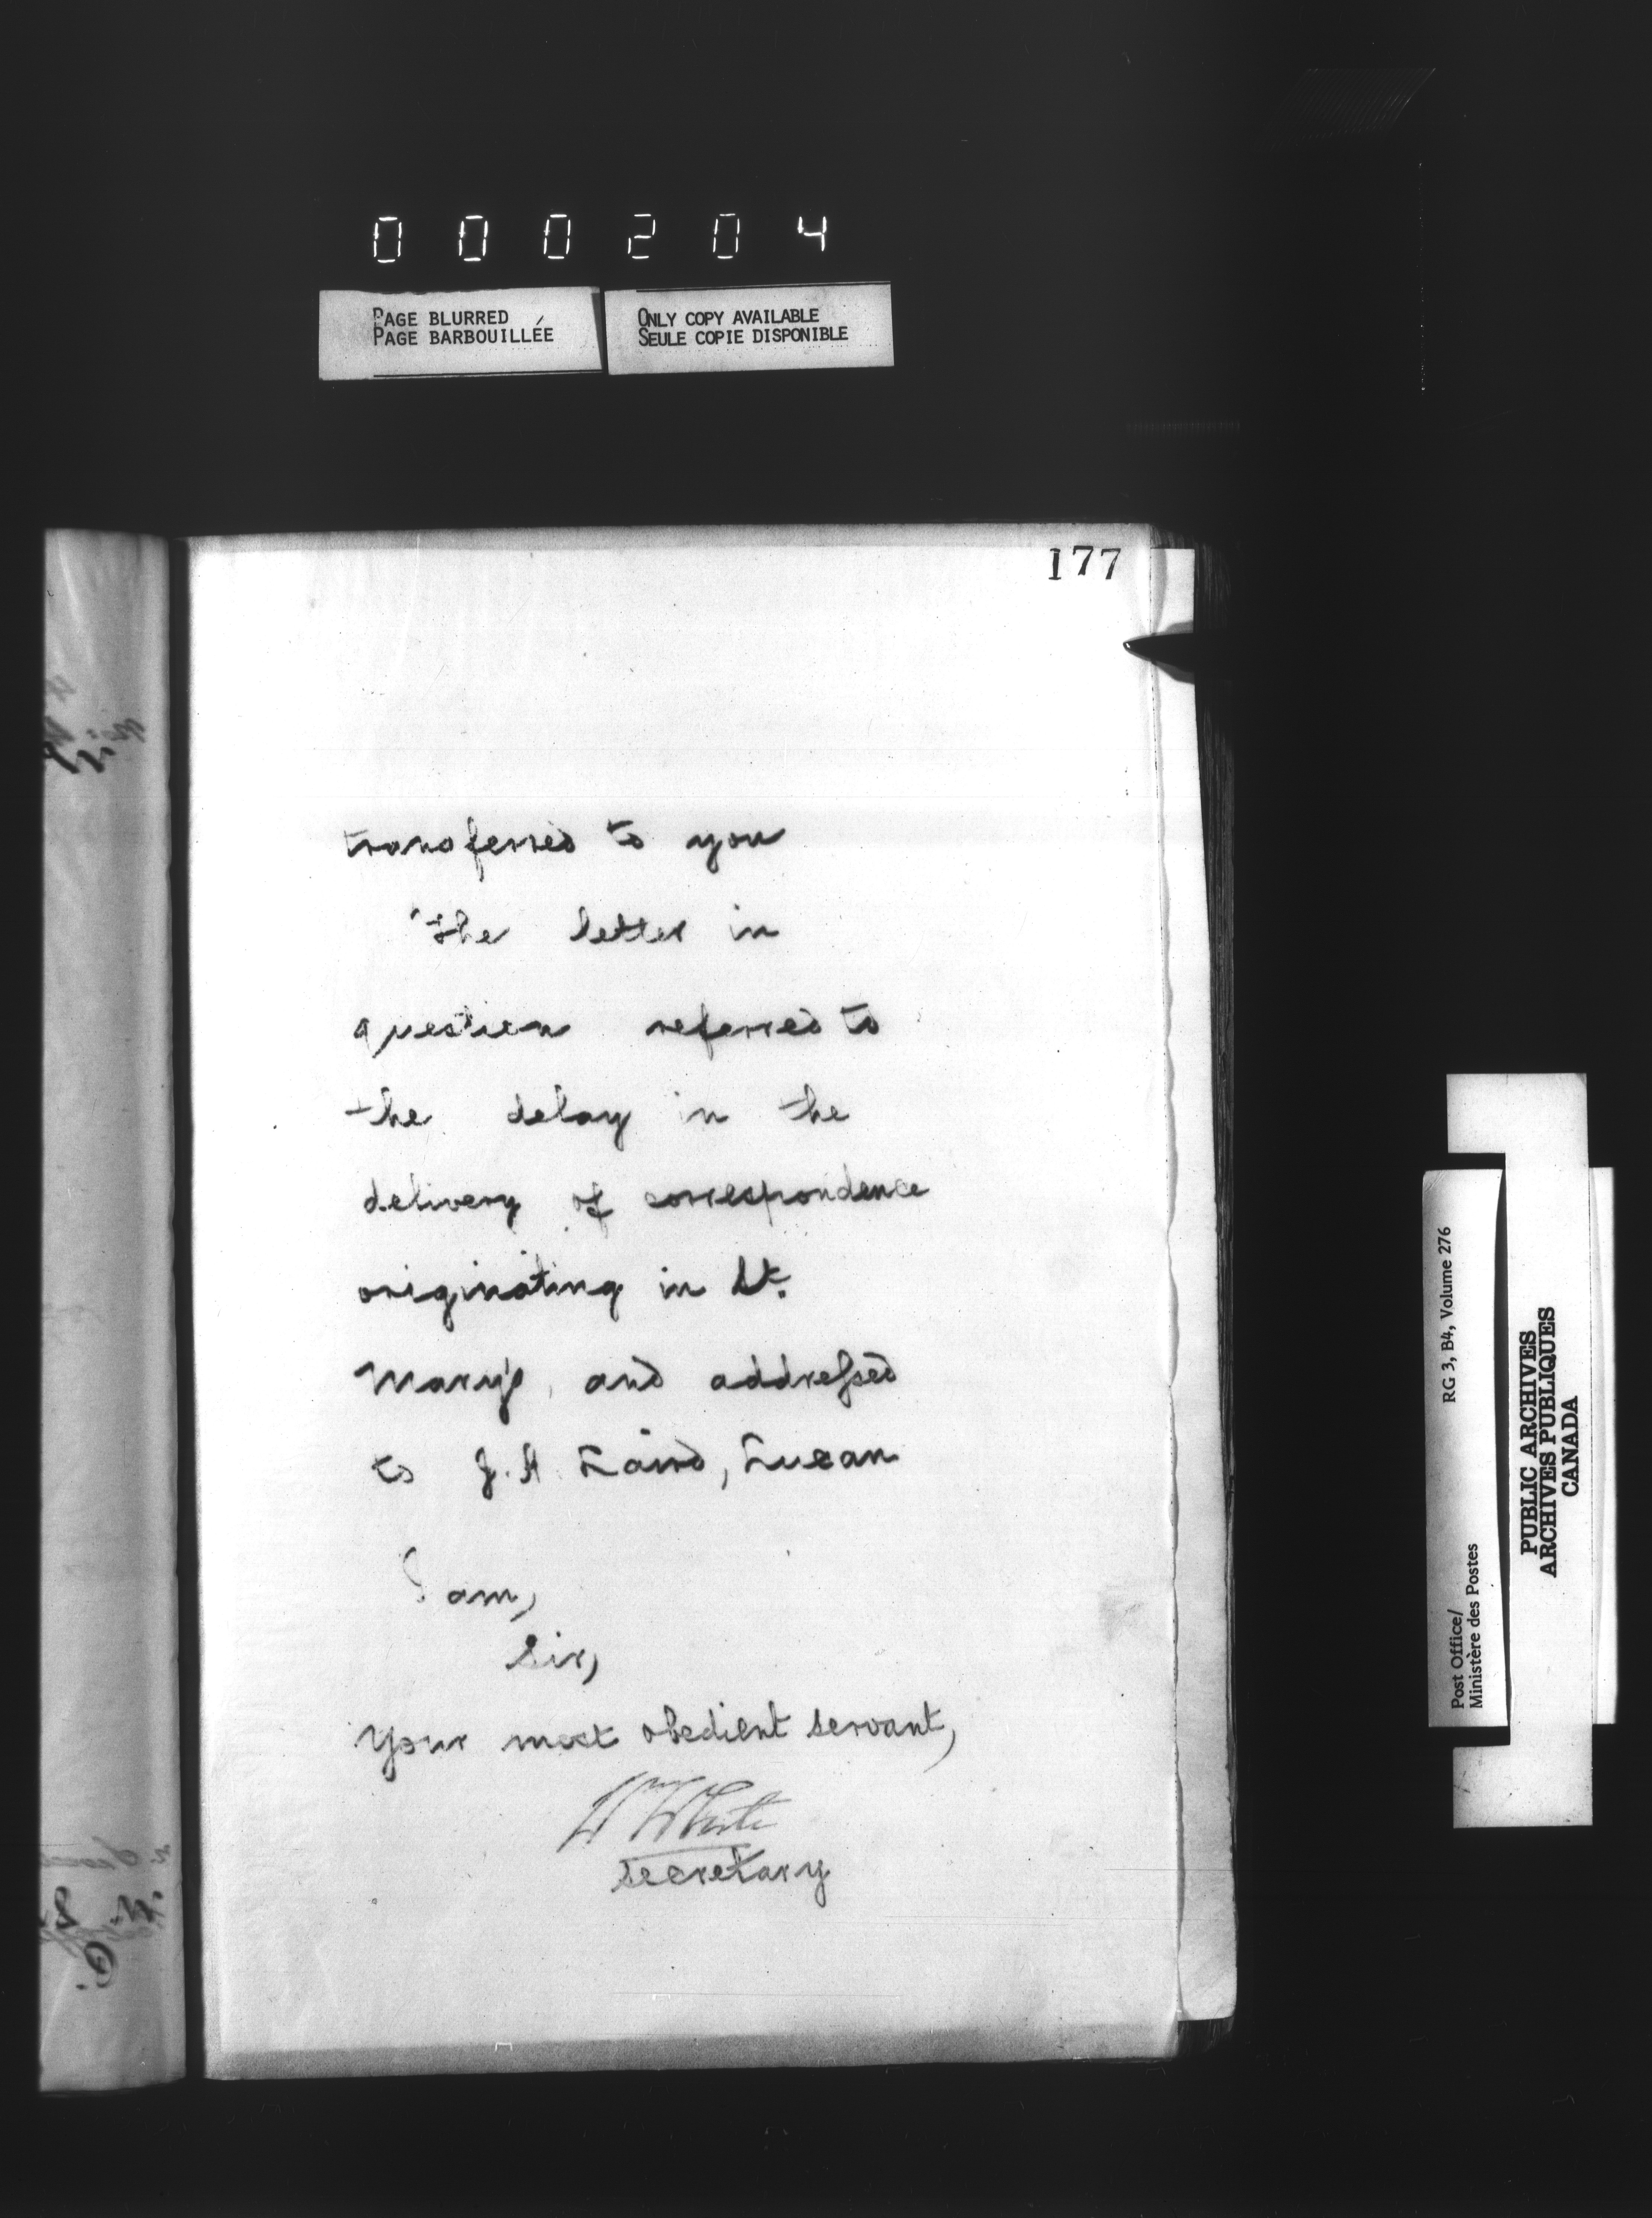 000204
PAGE BLURRED
PAGE BARBOUILLÉE
ONLY COPY AVAILABLE
SEULE COPIE DISPONIBLE
177
transferred to you
The letter in
question referred to
the delay in the
delivery of correspondence
originating in St.
Mary's, and addressed
to J. H. Laird, Lucan
I am,
Sir,
Your most obedient servant,
Wm White
Secretary
Post Office/
Ministère des Postes
RG 3, B4, Volume 276
PUBLIC ARCHIVES
ARCHIVES PUBLIQUES
CANADA